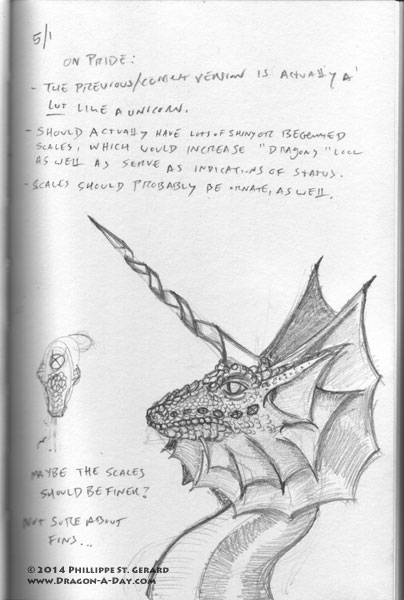 5/1
ON PRIDE:
- THE PREVIOUS/CURRENT VERSION IS ACTUALLY A
LOT LIKE A UNICORN.
- SHOULD ACTUALLY HAVE LOTS OF SHINY OR BEGEMMED
SCALES, WHICH WOULD INCREASE "DRAGONS" LOOK
AS WELL AS SERVE AS INDICATIONS OF STATUS.
- SCALES SHOULD PROBABLY BE ORNATE, AS WELL.
MAYBE THE SCALES
SHOULD BE FINER?
NOT SURE ABOUT
FINS...
© 2014 PHILLIPPE ST. GERARD
WWW.DRAGON-A-DAY.COM